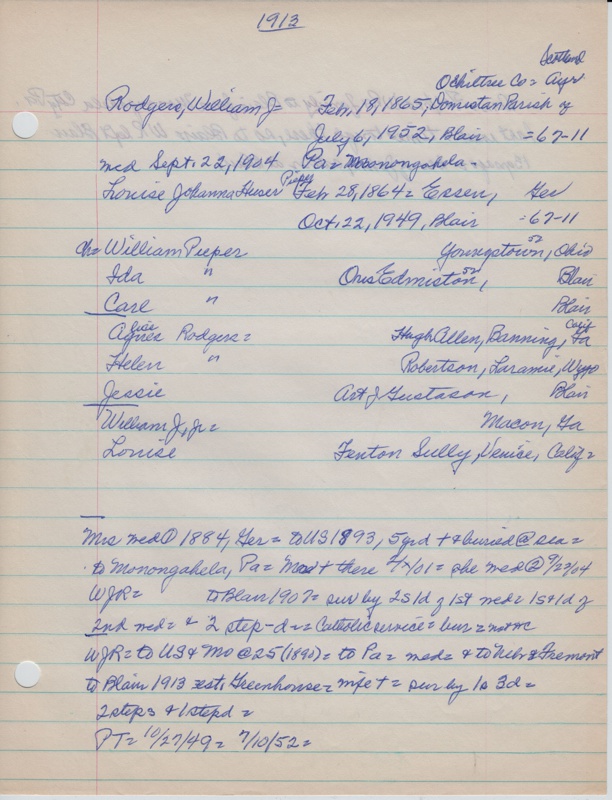 1913
Scotland
Ochiltree Co = Ayr
Rodgers, William J = Feb. 18, 1865, Domistan Parish of
July 6, 1952, Blair = 67-11
med Sept. 22, 1904 Pa = Monongahela -
Louise Johanna Huser Pieper Feb 28, 1864 = Essen, Ger
Oct. 22, 1949, Blair = 67-11
Ch = William Pieper Youngstown, 52 Ohio
Ida " Oris Edmiston, 52 Blair
Carl " Blair
Agnes Rodgers = Hugh Allen, Banning, Calif
Helen " Robertson, Laramie, Wyo
Jessie Art J Gustason, Blair
William J, Jr = Macon, Ga
Louise Fenton Sully, Venice, Calif =
Mrs med @ 1884, Ger = to US 1893, 5 yr d + & buried @ sea =
to Monongahela, Pa = + there 2/2/01 = she med @ 9/22/04
WJR = to Blair 1907 = sur by 2s 1d of 1st med = 1s & 1d of
2nd med = & 2 step-d = Catholic service = bur = not rc
WJR = to US & Mo @ 25 (1890) = to Pa = med = & to Nebr & Fremont
to Blair 1913 est. Greenhouse = wife + = sur by 1s 3d =
2 steps & 1 stepd =
PT = 10/27/49 = 7/10/52 =